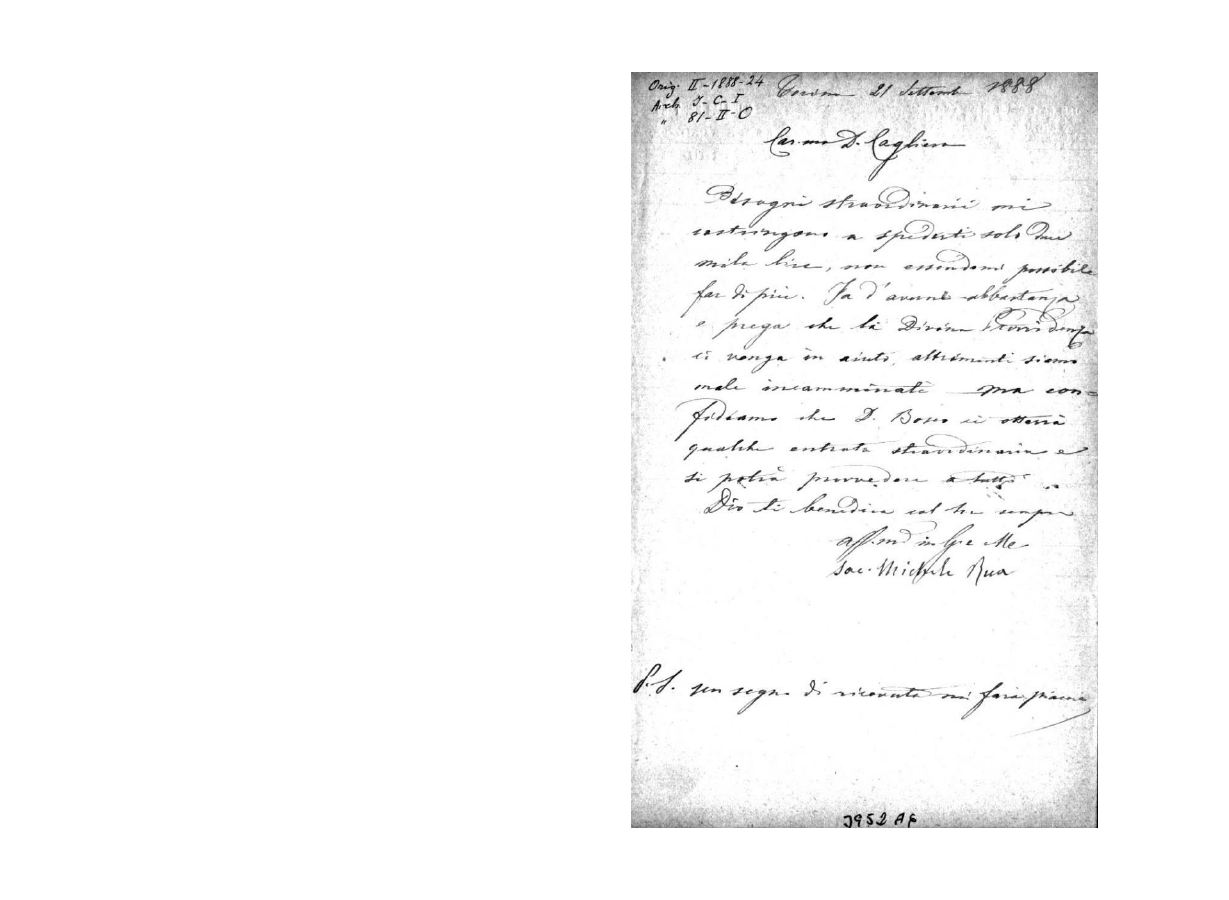 Orig. II-1888-24
Arch. I-C-I
" 81-II-O
Torino 21 Settembre 1888
Car.mo D. Cagliero
Bisogni straordinarii mi
costringono a spedirti solo due
mila lire, non essendomi possibile
far di più. Fa d'averne abbastanza
e prega che la Divina Provvidenza
ci venga in aiuto, altrimenti siamo
male incamminati ma con=
fidiamo che D. Bosco ci otterrà
qualche entrata straordinaria e
si potrà provvedere a tutto
Dio ti benedica col tuo sempre
aff.mo in G. e M.
Sac. Michele Rua
P.S. un segno di ricevuta mi farà piacere
3952 A6